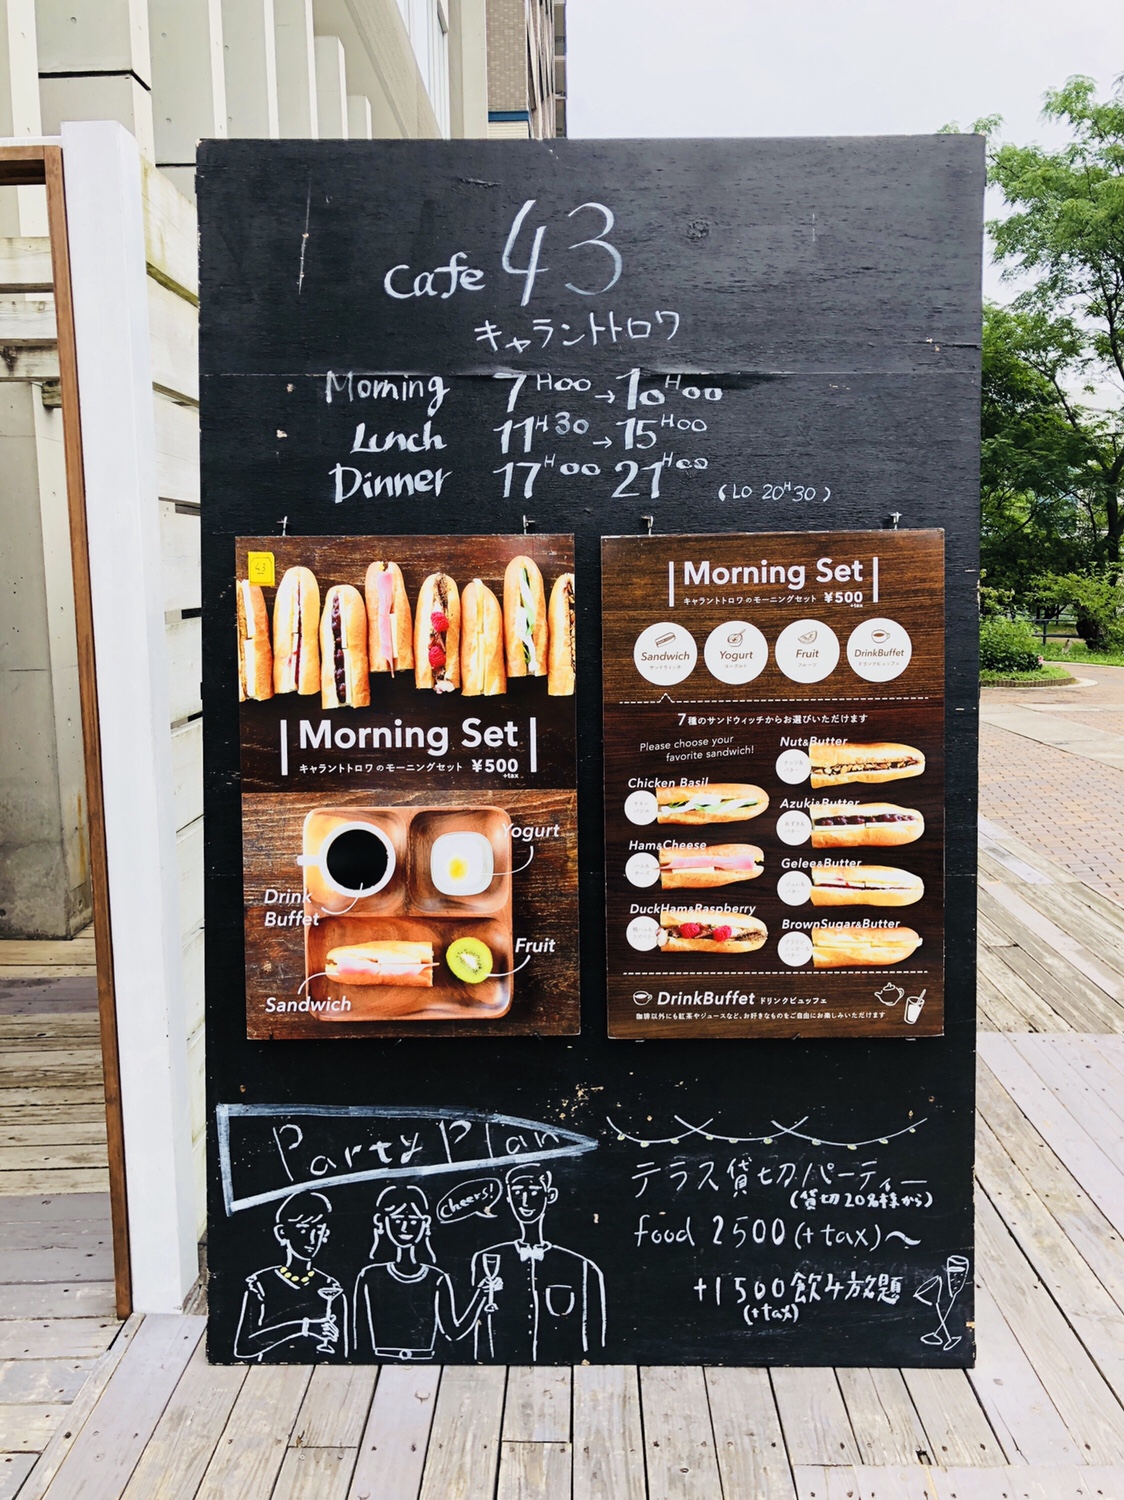 cafe 43
キャラントトロワ
Morning 7H00→10H00
Lunch 11H30→15H00
Dinner 17H00 21H00 (LO 20H30)
43
Morning Set
キャラントトロワのモーニングセット ¥500
+tax
Yogurt
Drink
Buffet
Fruit
Sandwich
Morning Set
キャラントトロワのモーニングセット ¥500
+tax
Sandwich Yogurt Fruit DrinkBuffet
サンドウィッチ ヨーグルト フルーツ ドリンクビュッフェ
7種のサンドウィッチからお選びいただけます
Please choose your
favorite sandwich!
Nut&Butter
Chicken Basil
Azuki&Butter
Ham&Cheese
Gelee&Butter
DuckHam&Raspberry
BrownSugar&Butter
DrinkBuffet ドリンクビュッフェ
珈琲以外にも紅茶やジュースなど、お好きなものをご自由にお楽しみいただけます
Party Plan
cheers!
テラス貸切パーティー
(貸切20名様から)
food 2500(+tax)〜
+1500飲み放題
(+tax)